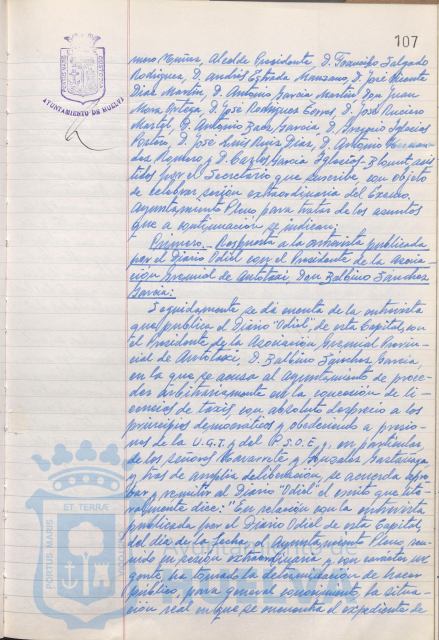 107
AYUNTAMIENTO DE HUELVA
mero Muñoz, Alcalde Presidente, D. Francisco Salgado
Rodríguez, D. Andrés Estrada Manzano, D. José Vicente
Díaz Martín, D. Antonio García Martín, Don Juan
Mora Ortega, D. José Rodríguez Torres, D. José Rucero
Martel, D. Antonio Baez García, D. Iglesias
D. José Luis Ruiz Díaz, D. Antonio
Romero y D. Carlos García Iglesias-Blount, asis
tidos por el Secretario que suscribe, con objeto
de celebrar sesión extraordinaria del Excmo.
Ayuntamiento Pleno para tratar de los asuntos
que a continuación se indican:
Primero.- Respuesta a la entrevista publicada
por el Diario Odiel con el Presidente de la Asocia-
ción Gremial de Autotaxi, Don Balbino Sánchez
García:
Seguidamente se dá cuenta de la entrevista
que publica el Diario "Odiel", de esta Capital, con
el Presidente de la Asociación Gremial Provin-
cial de Autotaxi D. Balbino Sánchez García,
en la que se acusa al Ayuntamiento de proce-
der arbitrariamente en la concesión de li-
cencias de taxis con absoluto desprecio a los
principios democráticos y obedeciendo a presio-
nes de la U.G.T. y del P.S.O.E. y, en particular
de los señores Navarrete y González Gastañaga,
y tras de amplia deliberación, se acuerda apro-
bar y remitir al Diario "Odiel" el escrito que lite-
ralmente dice: "En relación con la entrevista
publicada por el Diario Odiel de esta Capital
del día de la fecha, el Ayuntamiento Pleno, reu-
nido en sesión extraordinaria y con carácter ur-
gente, ha tomado la determinación de hacer
público, para general conocimiento, la situa-
ción real en que se encuentra el expediente de
PORTUS MARIS
ET TERRAE
Ayuntamiento de